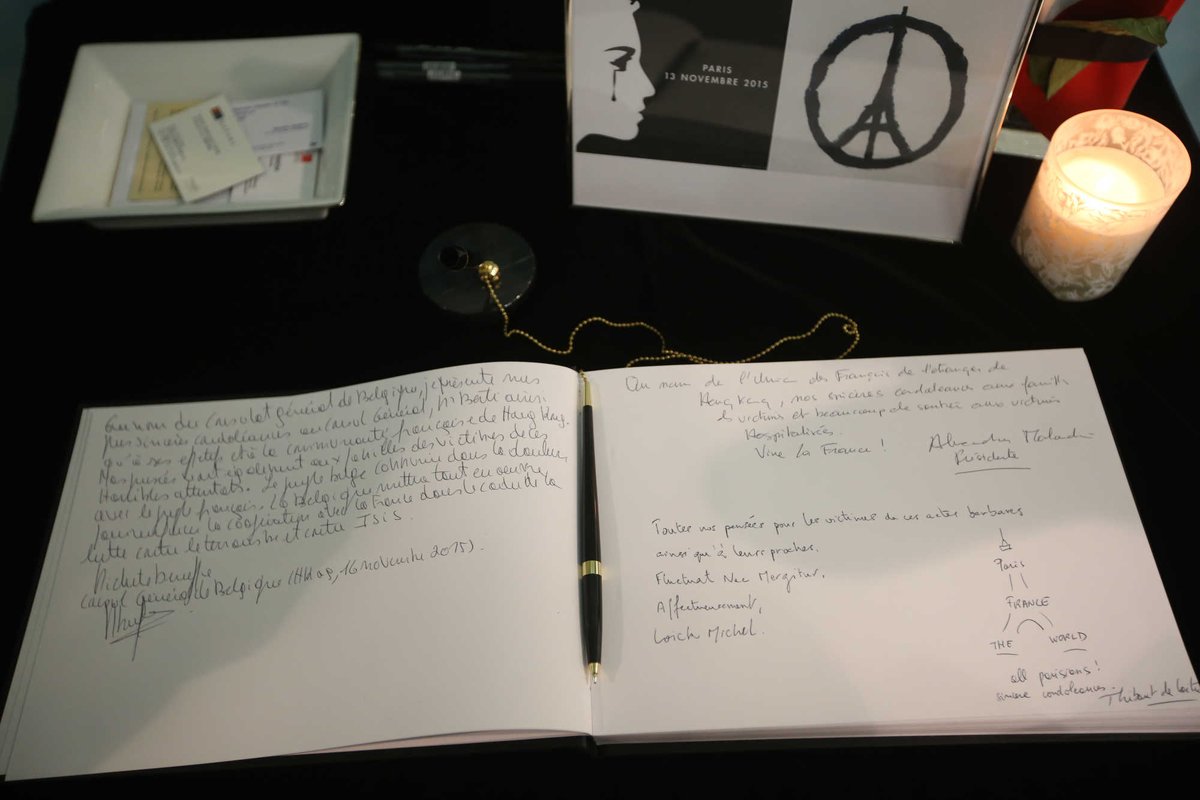 PARIS
13 NOVEMBRE 2015
Au nom du Consulat général de Belgique, je présente mes
plus sincères condoléances au Consul Général, Mr Berti ainsi
qu'à ses effectifs et à la communauté française de Hong Kong.
Nos pensées vont également aux familles des victimes de ces
horribles attentats. Le peuple belge communie dans la douleur
avec le peuple français. La Belgique mettra tout en oeuvre
pour la coopération avec la France dans le cadre de la
lutte contre le terrorisme et contre ISIS.
Michèle
Consul Général de Belgique (16 novembre 2015).
Au nom de l'Union des Français de l'étranger de
Hong Kong, nos sincères condoléances aux familles
de victimes et beaucoup de aux victimes
Hospitalisées.
Vive la France !
Présidente
Toutes nos pensées pour les victimes de ces actes barbares
ainsi qu'à leurs proches.
Fluctuat Nec Mergitur.
Affectueusement,
Loïch Michel.
Paris
FRANCE
THE WORLD
all parisians !
sincere condoleances.
Thibaut de